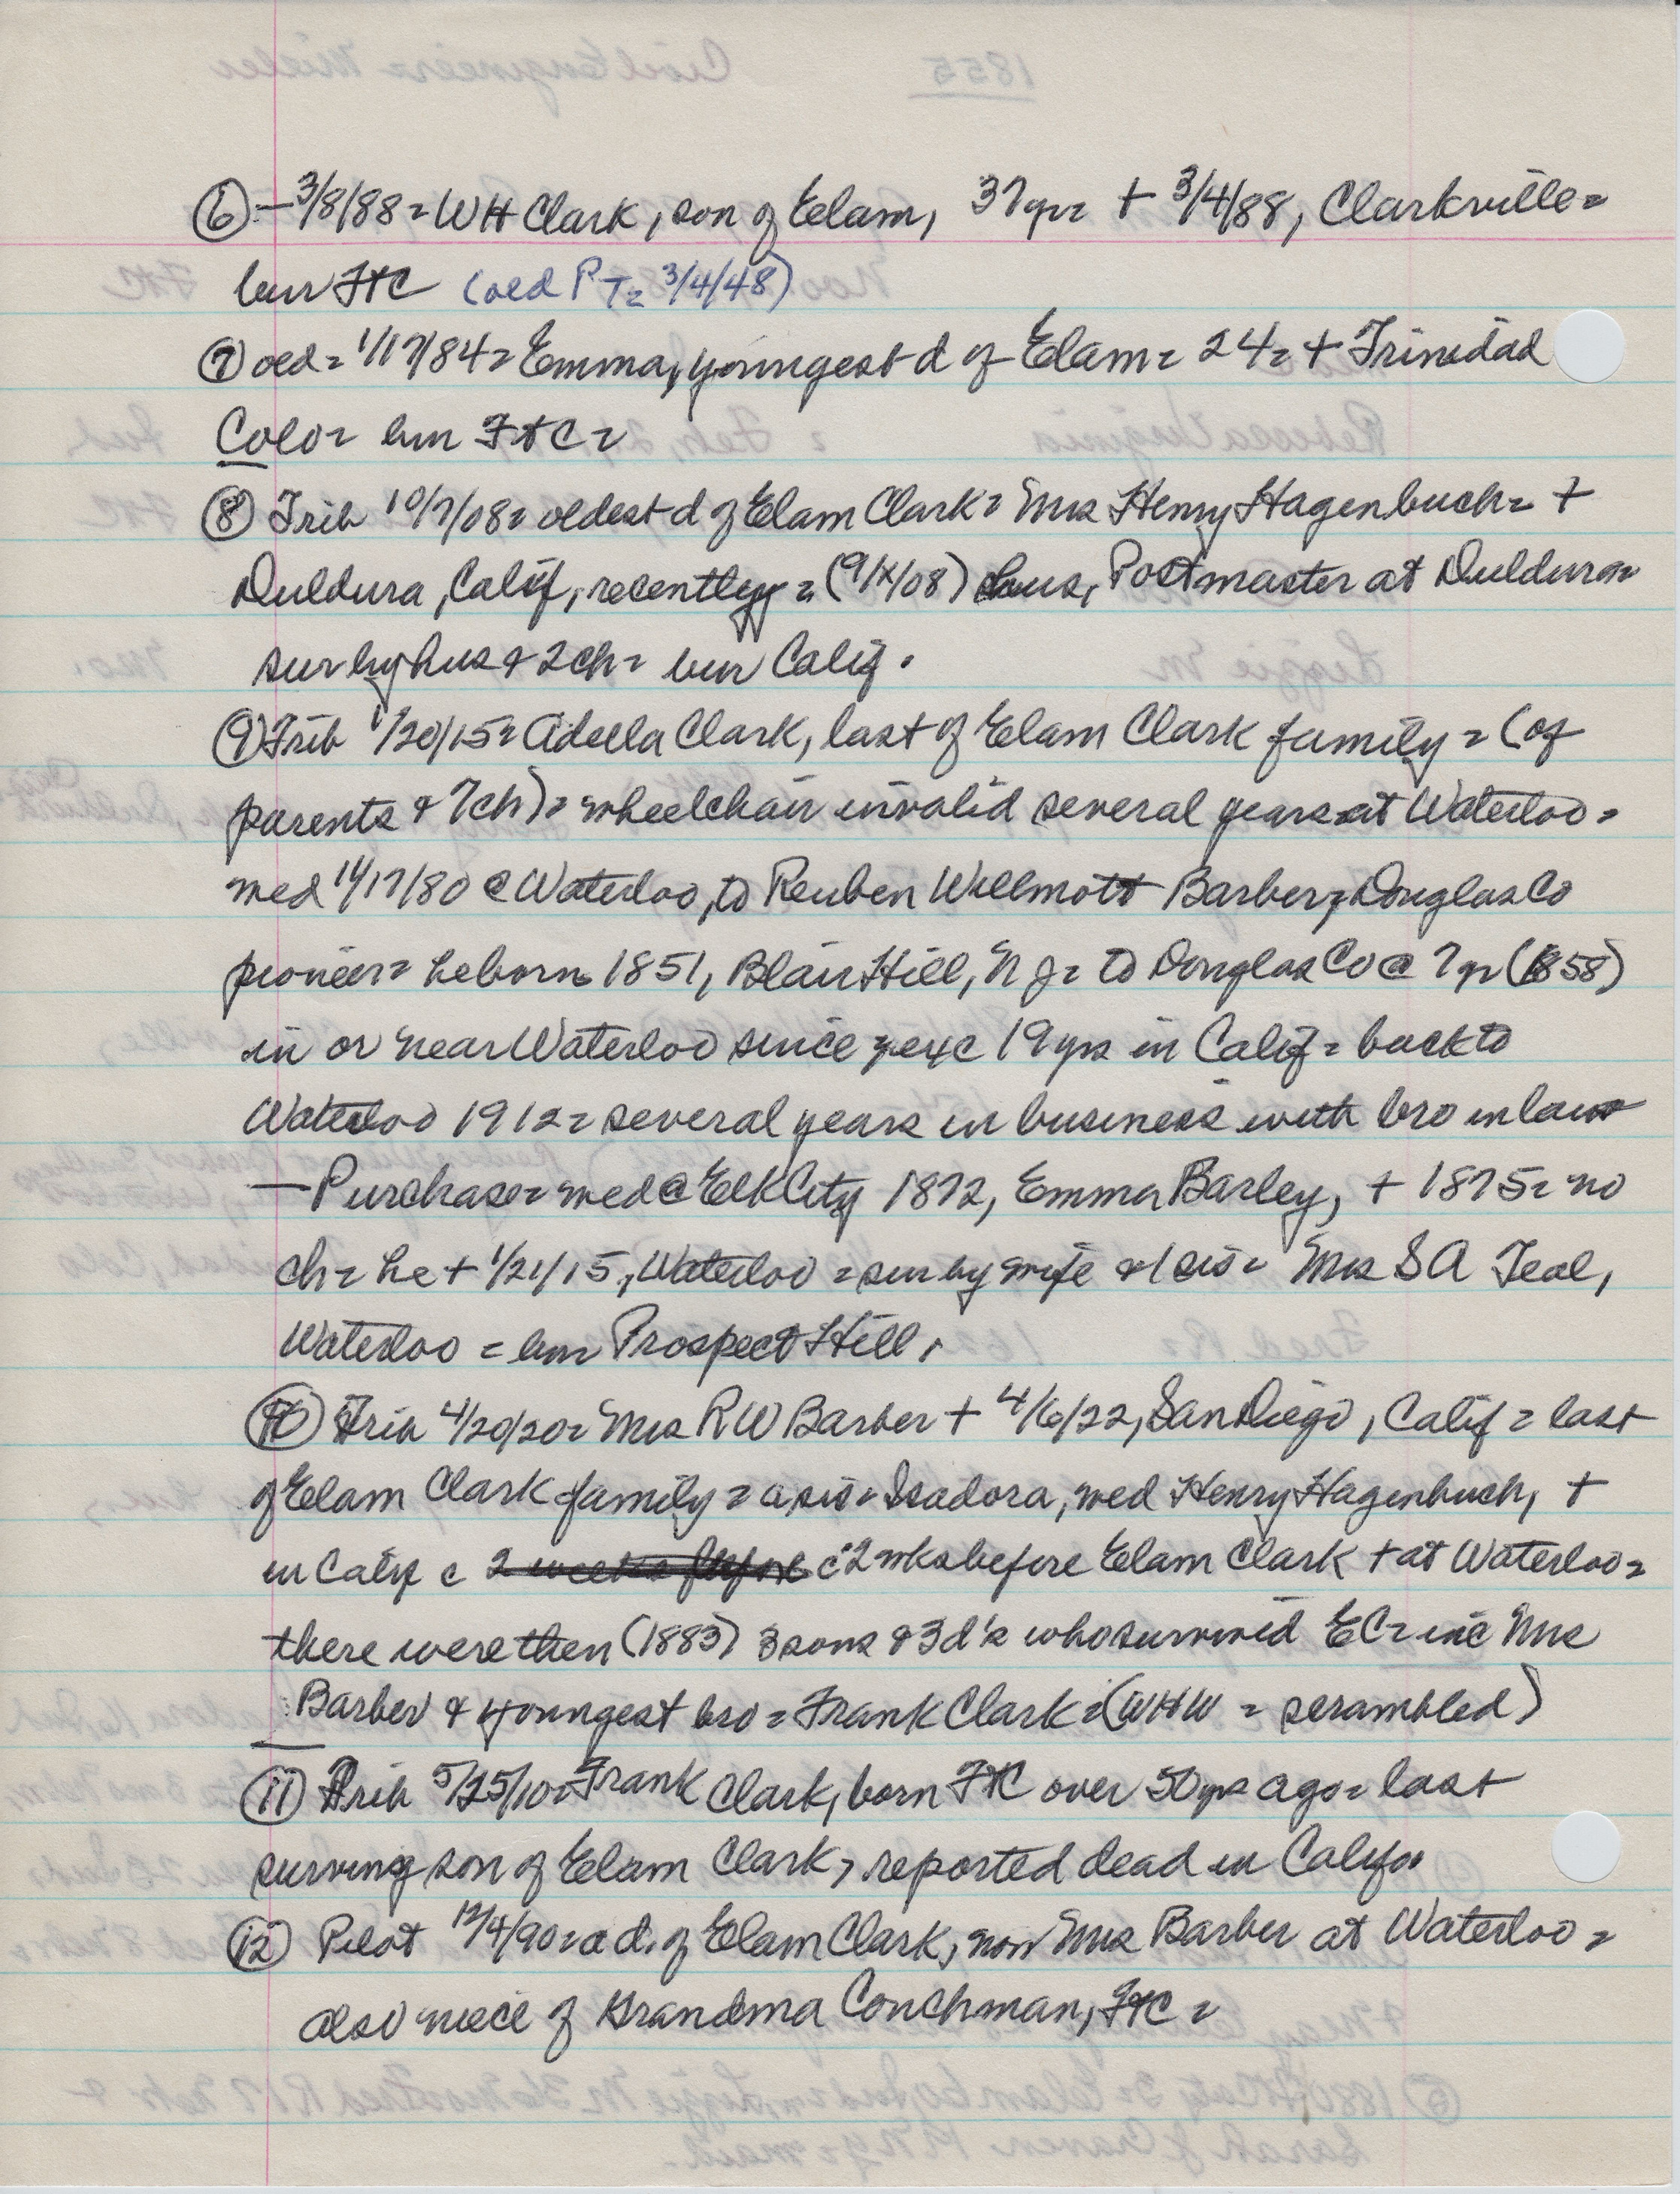 ⑥ – 3/8/88 = WH Clark, son of Elam, 37 yr = + 3/4/88, Clarkville =
bur FtC (oed PT = 3/4/48)
⑦ oed = 1/17/84 = Emma, youngest d of Elam = 24 = + Trinidad
Colo = bur FtC =
⑧ Trib 10/7/08 = oldest d of Elam Clark = Mrs Henry Hagenbuch = +
Duldura, Calif, recently = (9/X/08) hus, Postmaster at Duldura =
sur by hus & 2 ch = bur Calif.
⑨ Trib 1/20/15 = Adella Clark, last of Elam Clark family = (of
parents & 7 ch) = wheelchair invalid several years at Waterloo =
med 11/17/80 @ Waterloo, to Reuben Willmott Barber, Douglas Co
pioneer = he born 1851, Blair Hill, NJ = to Douglas Co @ 7 yr (1858)
in or near Waterloo since exc 19 yrs in Calif = back to
Waterloo 1912 = several years in business with bro in law
— Purchase = med @ Elk City 1872, Emma Barley, + 1875 = no
ch = he + 1/21/15, Waterloo = sur by wife & 1 sis = Mrs SA Teal,
Waterloo = bur Prospect Hill.
⑩ Trib 4/20/20 = Mrs RW Barber + 4/6/22, San Diego, Calif = last
of Elam Clark family = a sis = Isadora, med Henry Hagenbuch, +
in Calif c 2 weeks before c 2 wks before Elam Clark + at Waterloo =
there were then (1883) 3 sons & 3 d's who survived EC = inc Mrs
Barber & youngest bro = Frank Clark = (WHW = scrambled)
⑪ Trib 5/25/10 = Frank Clark, born FtC over 50 yrs ago = last
surving son of Elam Clark, reported dead in Calif.
⑫ Pilot 12/4/90 = a d. of Elam Clark, now Mrs Barber at Waterloo =
also niece of Grandma Conchman, FtC =